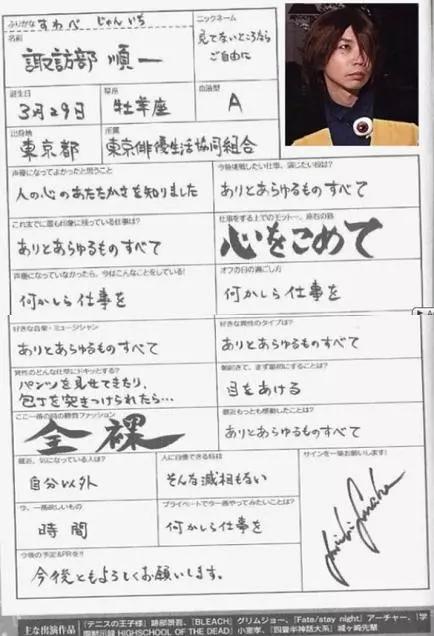 ふりがな すわべ じゅんいち
名前
諏訪部 順一
ニックネーム
見てないところなら
ご自由に
誕生日
3月29日
星座
牡羊座
血液型
A
出身地
東京都
所属
東京俳優生活協同組合
声優になってよかったと思うこと
人の心のあたたかさを知りました
今後挑戦したい仕事、演じたい役は?
ありとあらゆるものすべて
これまでに最も印象に残っている仕事は?
ありとあらゆるものすべて
仕事をする上でのモットー、座右の銘
心をこめて
声優になっていなかったら、今はこんなことをしている!
何かしら仕事を
オフの日の過ごし方
何かしら仕事を
好きな音楽・ミュージシャン
ありとあらゆるものすべて
好きな異性のタイプは?
ありとあらゆるものすべて
異性のどんな仕草にドキッとする?
パンツを見せてきたり、
包丁を突きつけられたら…
朝起きて、まず最初にすることは?
目をあける
ここ一番の時の勝負ファッション
全裸
最近もっとも感動したことは?
ありとあらゆるものすべて
最近、気になっている人は?
自分以外
人に自慢できる特技
そんな滅相もない
サインを一筆お願いします!
今、一番欲しいもの
時間
プライベートで今一番やってみたいことは?
何かしら仕事を
今後の予定&PRを!!
今後ともよろしくお願いします。
主な出演作品
『テニスの王子様』跡部景吾、『BLEACH』グリムジョー、『Fate/stay night』アーチャー、『学
園黙示録 HIGHSCHOOL OF THE DEAD』小室孝、『四畳半神話大系』城ヶ崎先輩